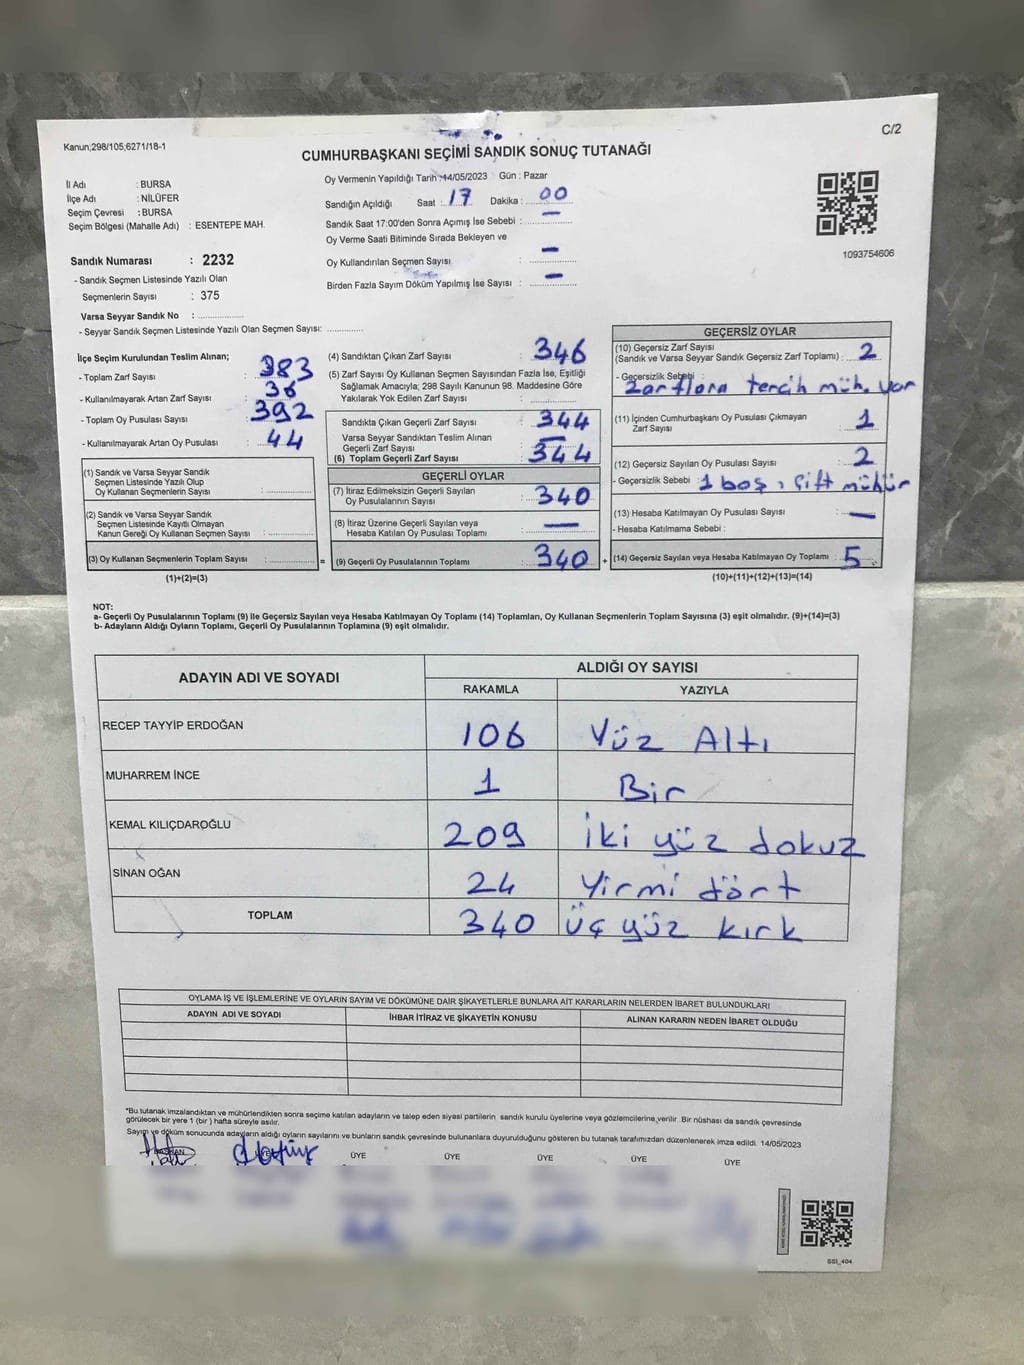 C/2
Kanun;298/105;6271/18-1
CUMHURBAŞKANI SEÇİMİ SANDIK SONUÇ TUTANAĞI
İl Adı : BURSA
İlçe Adı : NİLÜFER
Seçim Çevresi : BURSA
Seçim Bölgesi (Mahalle Adı) : ESENTEPE MAH.
Sandık Numarası : 2232
- Sandık Seçmen Listesinde Yazılı Olan
Seçmenlerin Sayısı : 375
Varsa Seyyar Sandık No : ............
- Seyyar Sandık Seçmen Listesinde Yazılı Olan Seçmen Sayısı: ............
Oy Vermenin Yapıldığı Tarih :14/05/2023 Gün : Pazar
Sandığın Açıldığı Saat : 17 Dakika : 00
Sandık Saat 17:00'den Sonra Açımış İse Sebebi : —
Oy Verme Saati Bitiminde Sırada Bekleyen ve
Oy Kullandırılan Seçmen Sayısı : —
Birden Fazla Sayım Döküm Yapılmış İse Sayısı : —
1093754606
İlçe Seçim Kurulundan Teslim Alınan;
- Toplam Zarf Sayısı : 383
- Kullanılmayarak Artan Zarf Sayısı : 36
- Toplam Oy Pusulası Sayısı : 392
- Kullanılmayarak Artan Oy Pusulası : 44
(1) Sandık ve Varsa Seyyar Sandık
Seçmen Listesinde Yazılı Olup
Oy Kullanan Seçmenlerin Sayısı : ............
(2) Sandık ve Varsa Seyyar Sandık
Seçmen Listesinde Kayıtlı Olmayan
Kanun Gereği Oy Kullanan Seçmen Sayısı : ............
(3) Oy Kullanan Seçmenlerin Toplam Sayısı : ............ =
(1)+(2)=(3)
(4) Sandıktan Çıkan Zarf Sayısı : 346
(5) Zarf Sayısı Oy Kullanan Seçmen Sayısından Fazla İse, Eşitliği
Sağlamak Amacıyla; 298 Sayılı Kanunun 98. Maddesine Göre
Yakılarak Yok Edilen Zarf Sayısı : ............
Sandıkta Çıkan Geçerli Zarf Sayısı : 344
Varsa Seyyar Sandıktan Teslim Alınan
Geçerli Zarf Sayısı : —
(6) Toplam Geçerli Zarf Sayısı : 344
GEÇERLİ OYLAR
(7) İtiraz Edilmeksizin Geçerli Sayılan
Oy Pusulalarının Sayısı : 340
(8) İtiraz Üzerine Geçerli Sayılan veya
Hesaba Katılan Oy Pusulası Toplamı : —
(9) Geçerli Oy Pusulalarının Toplamı : 340 +
GEÇERSİZ OYLAR
(10) Geçersiz Zarf Sayısı
(Sandık ve Varsa Seyyar Sandık Geçersiz Zarf Toplamı) : 2
- Geçersizlik Sebebi :
Zarflara tercih müh. var
(11) İçinden Cumhurbaşkanı Oy Pusulası Çıkmayan
Zarf Sayısı : 1
(12) Geçersiz Sayılan Oy Pusulası Sayısı : 2
- Geçersizlik Sebebi : 1 boş, çift mühür
(13) Hesaba Katılmayan Oy Pusulası Sayısı : —
- Hesaba Katılmama Sebebi :
(14) Geçersiz Sayılan veya Hesaba Katılmayan Oy Toplamı : 5
(10)+(11)+(12)+(13)=(14)
NOT:
a- Geçerli Oy Pusulalarının Toplamı (9) ile Geçersiz Sayılan veya Hesaba Katılmayan Oy Toplamı (14) Toplamları, Oy Kullanan Seçmenlerin Toplam Sayısına (3) eşit olmalıdır. (9)+(14)=(3)
b- Adayların Aldığı Oyların Toplamı, Geçerli Oy Pusulalarının Toplamına (9) eşit olmalıdır.
ADAYIN ADI VE SOYADI
ALDIĞI OY SAYISI
RAKAMLA YAZIYLA
RECEP TAYYİP ERDOĞAN 106 Yüz Altı
MUHARREM İNCE 1 Bir
KEMAL KILIÇDAROĞLU 209 İki yüz dokuz
SİNAN OĞAN 24 Yirmi dört
TOPLAM 340 Üç yüz kırk
OYLAMA İŞ VE İŞLEMLERİNE VE OYLARIN SAYIM VE DÖKÜMÜNE DAİR ŞİKAYETLERLE BUNLARA AİT KARARLARIN NELERDEN İBARET BULUNDUKLARI
ADAYIN ADI VE SOYADI İHBAR İTİRAZ VE ŞİKAYETİN KONUSU ALINAN KARARIN NEDEN İBARET OLDUĞU
*Bu tutanak imzalandıktan ve mühürlendikten sonra seçime katılan adayların ve talep eden siyasi partilerin sandık kurulu üyelerine veya gözlemcilerine verilir. Bir nüshası da sandık çevresinde
görülecek bir yere 1 (bir) hafta süreyle asılır.
Sayım ve döküm sonucunda adayların aldığı oyların sayılarını ve bunların sandık çevresinde bulunanlara duyurulduğunu gösteren bu tutanak tarafımızdan düzenlenerek imza edildi. 14/05/2023
BAŞKAN ÜYE ÜYE ÜYE ÜYE ÜYE ÜYE
SSI_404